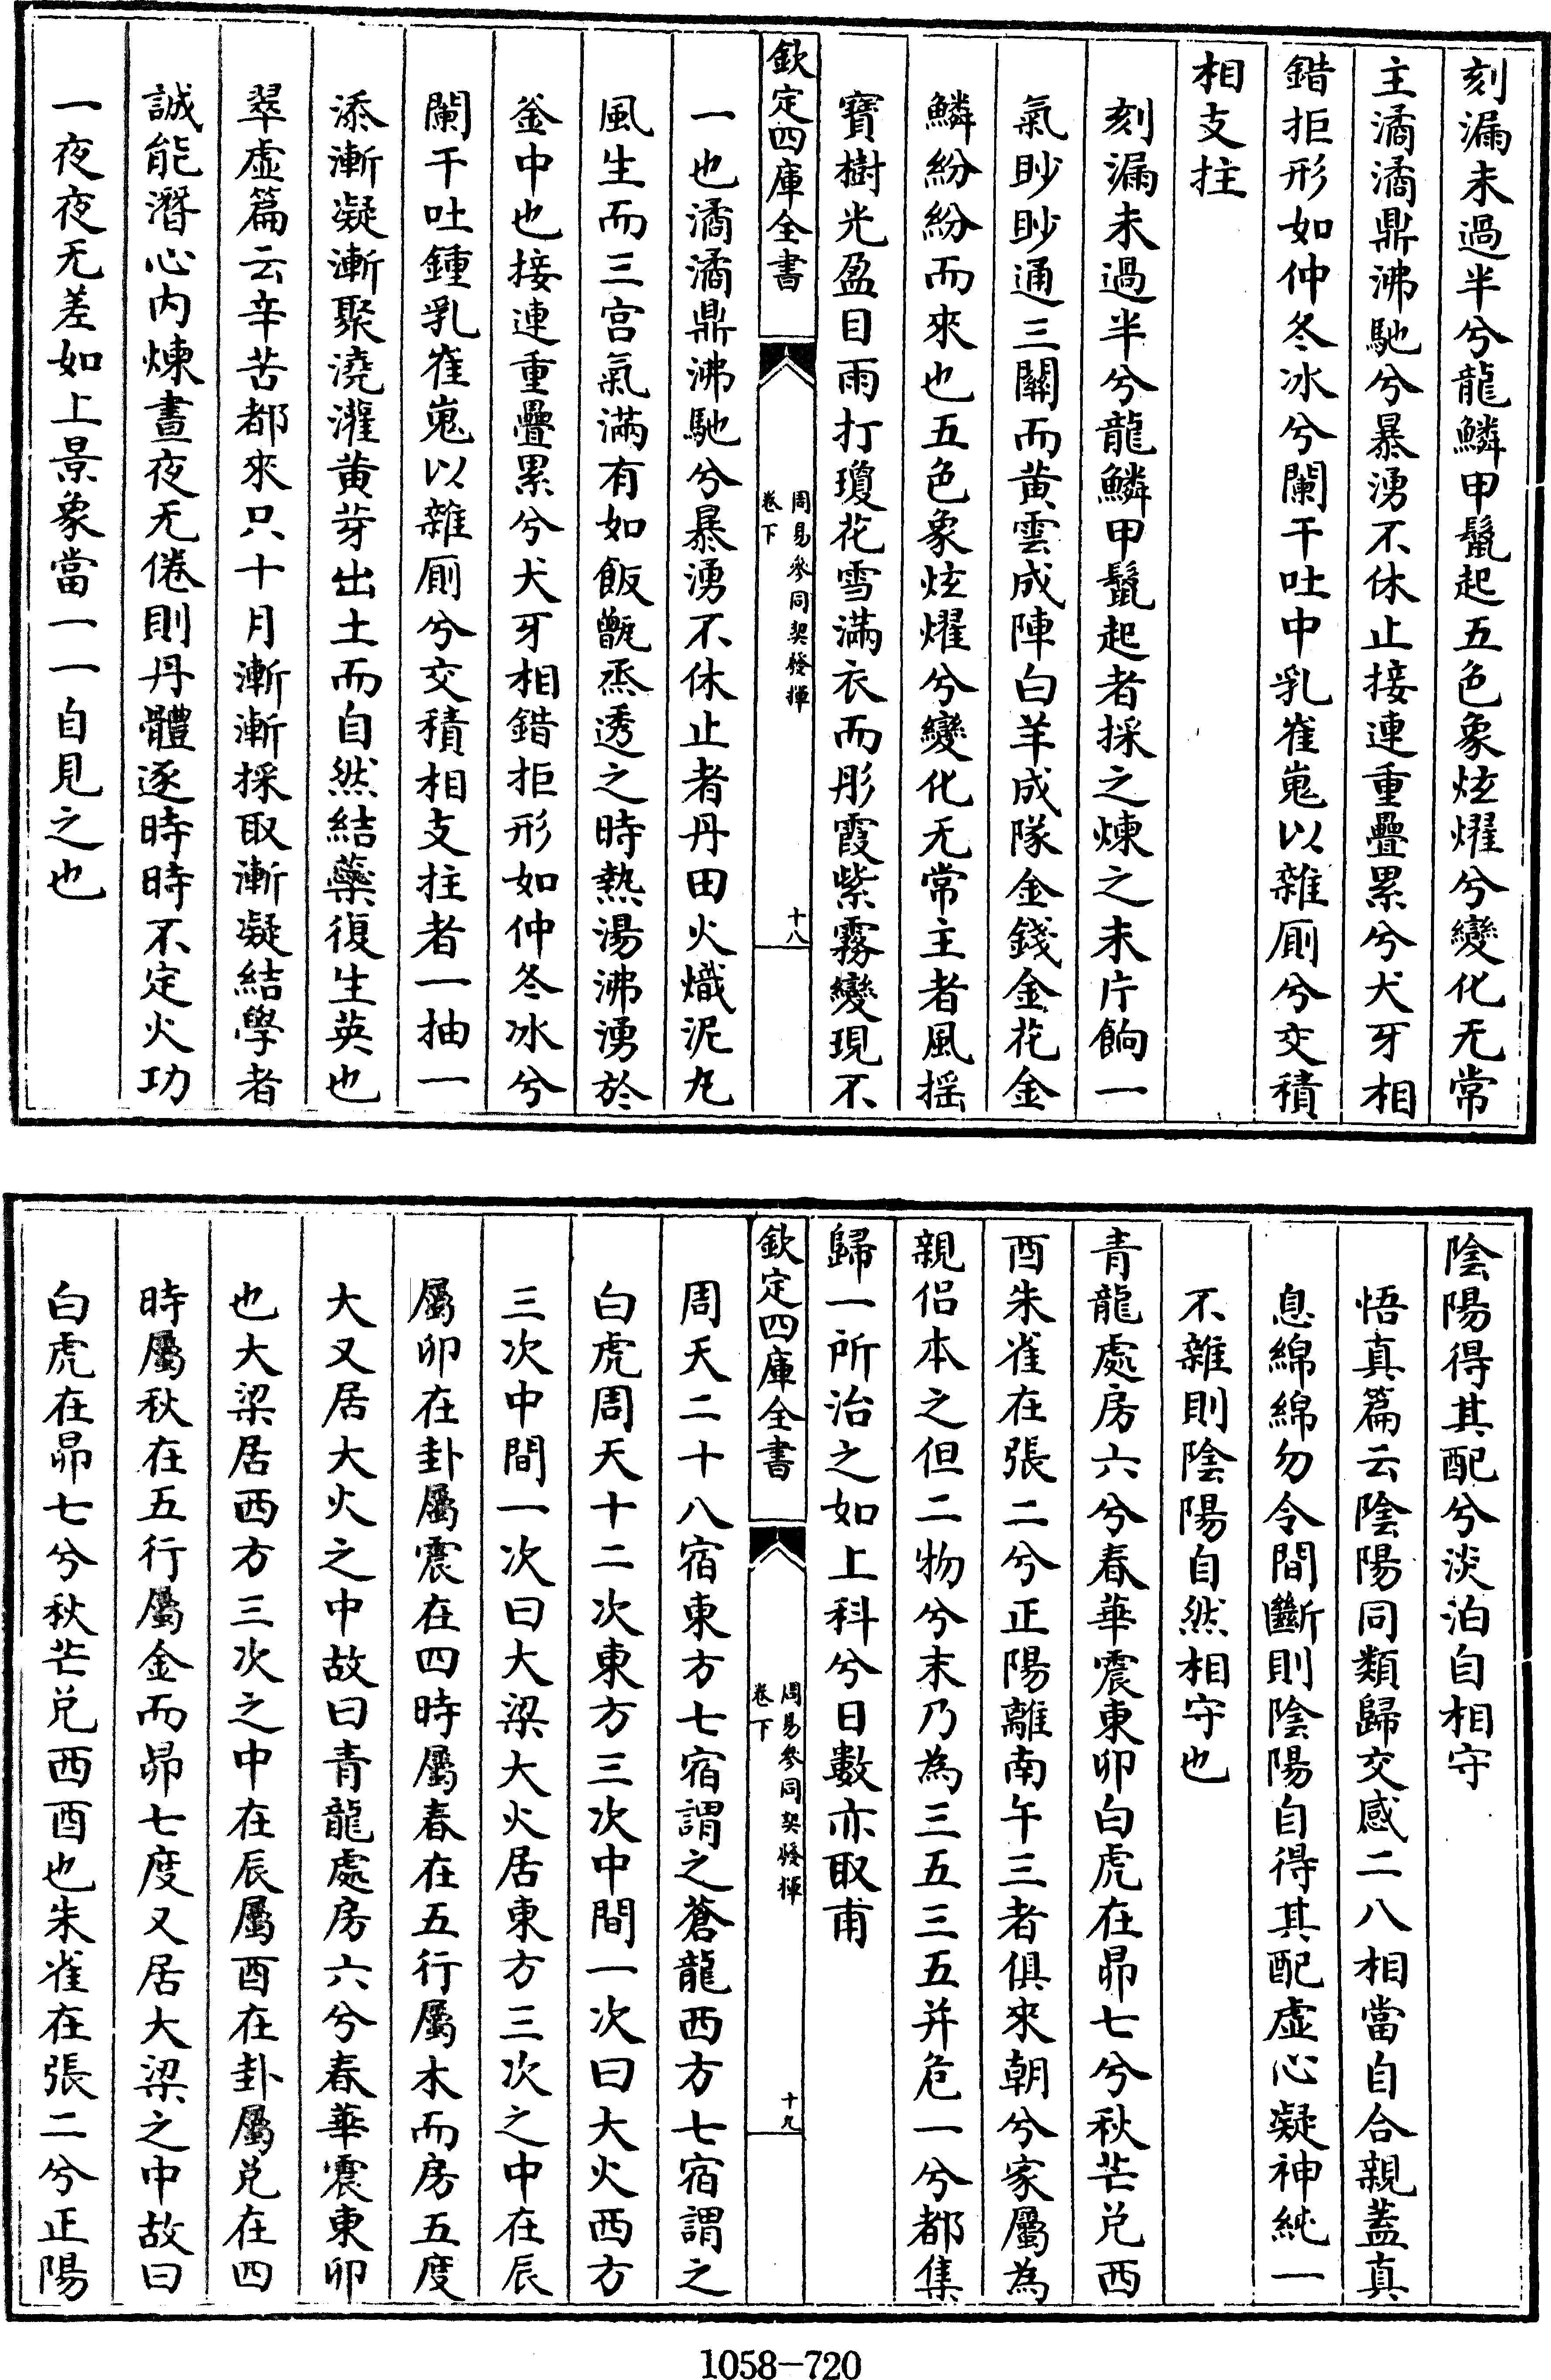 刻漏未過半兮龍鱗甲鬛起五色象炫燿兮變化无常
主潏潏鼎沸馳兮暴湧不休止接連重疊累兮犬牙相
錯拒形如仲冬冰兮闌干吐中乳崔嵬以雜厠兮交積
相支拄
刻漏未過半兮龍鱗甲鬛起者採之煉之未片餉一
氣眇眇通三關而黄雲成陣白羊成隊金錢金花金
鱗紛紛而來也五色象炫燿兮變化无常主者風摇
寶樹光盈目雨打瓊花雪滿衣而彤霞紫霧變現不
欽定四庫全書
周易參同契發揮
卷下
十八
一也潏潏鼎沸馳兮暴湧不休止者丹田火熾泥丸
風生而三宫氣滿有如飯甑烝透之時熱湯沸湧於
釜中也接連重疊累兮犬牙相錯拒形如仲冬冰兮
闌干吐鍾乳崔嵬以雜厠兮交積相支拄者一抽一
添漸凝漸聚澆灌黄芽出土而自然結藥復生英也
翠虚篇云辛苦都來只十月漸漸採取漸凝結學者
誠能潛心内煉晝夜无倦則丹體逐時時不定火功
一夜夜无差如上景象當一一自見之也
陰陽得其配兮淡泊自相守
悟真篇云陰陽同類歸交感二八相當自合親蓋真
息綿綿勿令間斷則陰陽自得其配虚心凝神純一
不雜則陰陽自然相守也
青龍處房六兮春華震東卯白虎在昴七兮秋芒兑西
酉朱雀在張二兮正陽離南午三者俱來朝兮家屬為
親侣本之但二物兮末乃為三五三五并危一兮都集
歸一所治之如上科兮日數亦取甫
欽定四庫全書
周易參同契發揮
卷下
十九
周天二十八宿東方七宿謂之蒼龍西方七宿謂之
白虎周天十二次東方三次中間一次曰大火西方
三次中間一次曰大梁大火居東方三次之中在辰
屬卯在卦屬震在四時屬春在五行屬木而房五度
大又居大火之中故曰青龍處房六兮春華震東卯
也大梁居西方三次之中在辰屬酉在卦屬兑在四
時屬秋在五行屬金而昴七度又居大梁之中故曰
白虎在昴七兮秋芒兑西酉也朱雀在張二兮正陽
1058-720